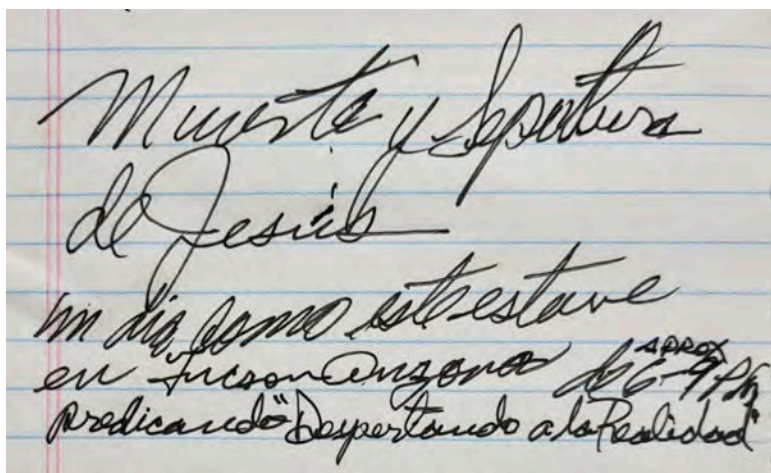 Muerte y Sepultura
de Jesús
un dia como este estuve
en Tucson Arizona de 6-9 PM
APROX
predicando "Despertando a la Realidad"